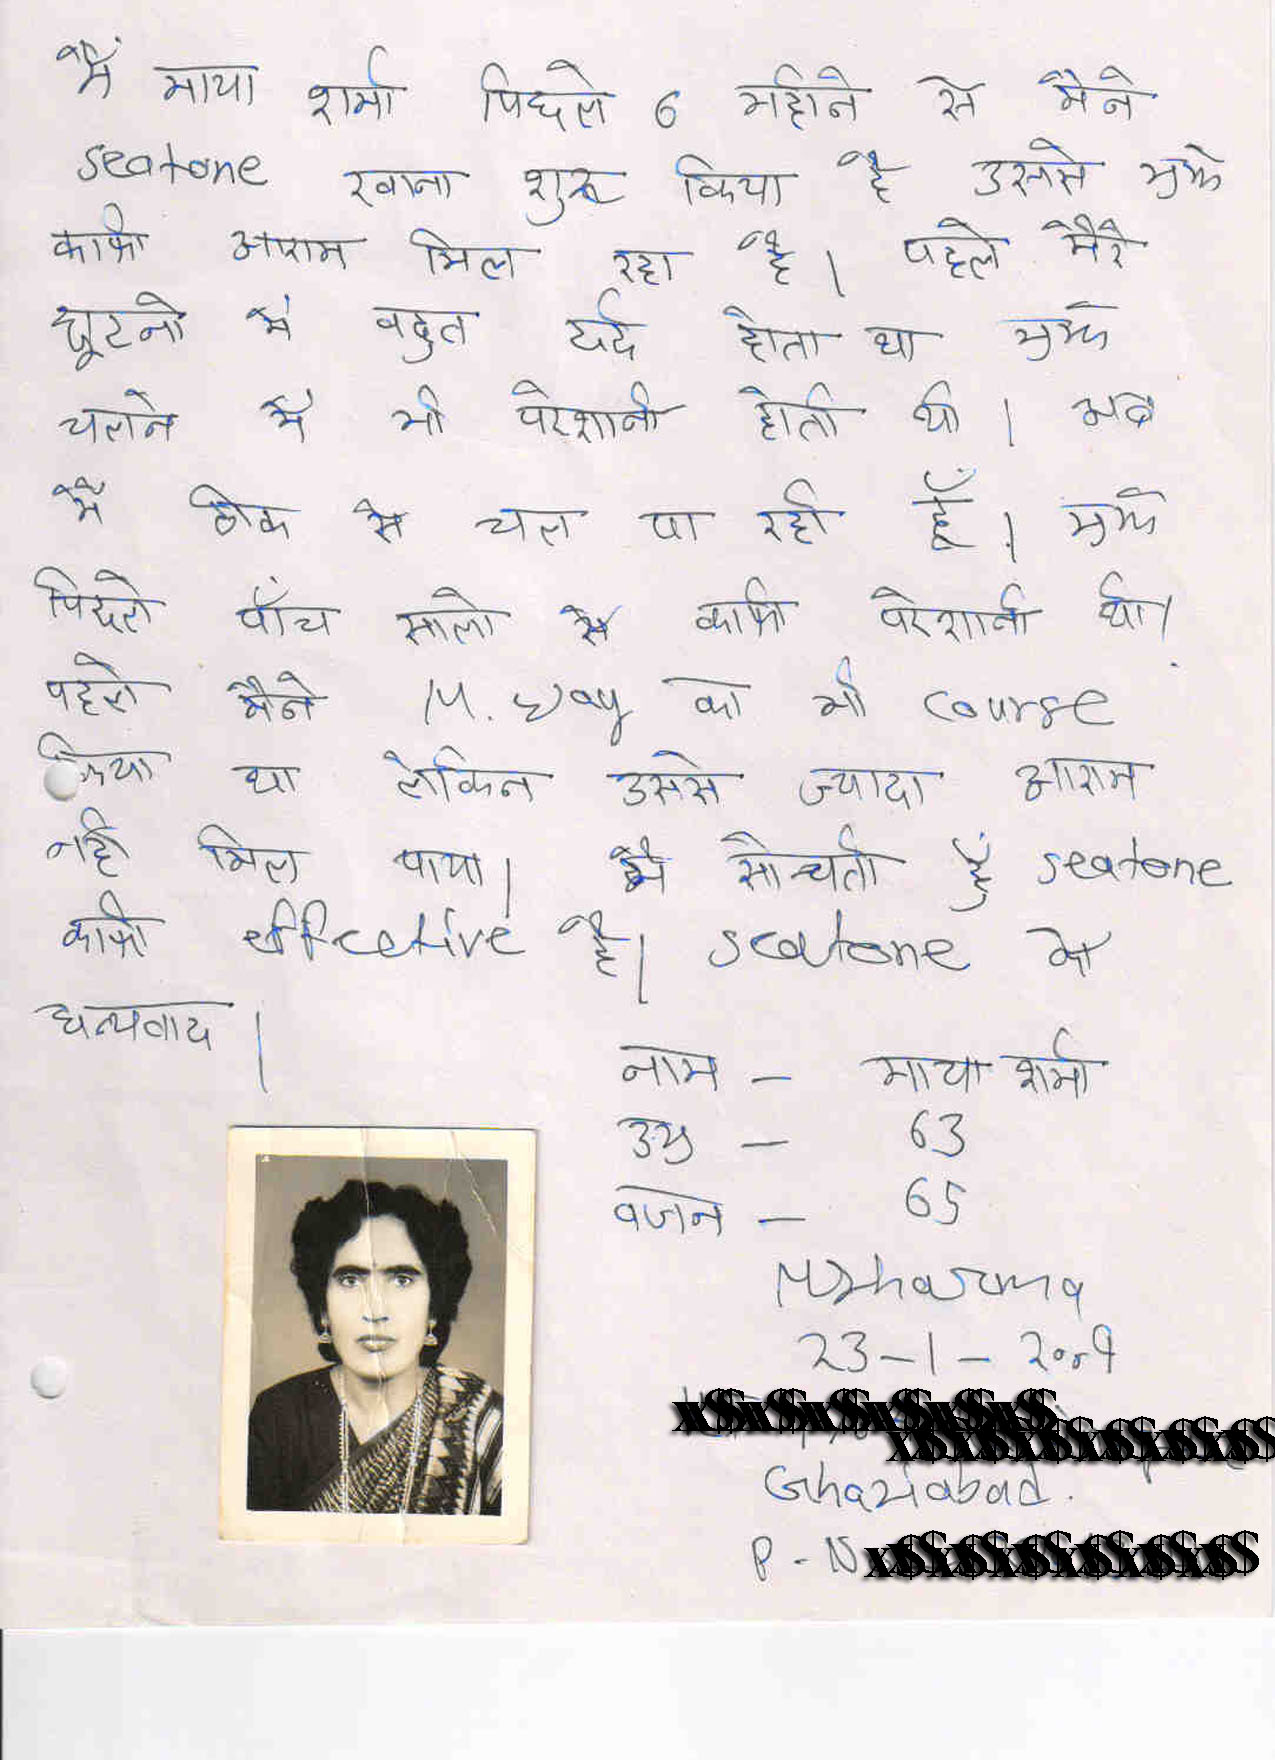 मैं माया शर्मा पिछले 6 महीने से मैने
seatone खाना शुरू किया है उससे मुझे
काफी आराम मिल रहा है। पहले मेरे
घूटनो में बहुत दर्द होता था मुझे
चलने में भी परेशानी होती थी। अब
मैं ठीक से चल पा रही हूँ। मुझे
पिछले पाँच सालो से काफी परेशानी थी।
पहले मैने M. Way का भी course
किया था लेकिन उससे ज्यादा आराम
नही मिल पाया। मै सोचती हुं seatone
काफी effective है। seatone को
धन्यवाद।
नाम – माया शर्मा
उम्र – 63
वजन – 65
MSharma
23-1-2009
Ghaziabad.
P-N